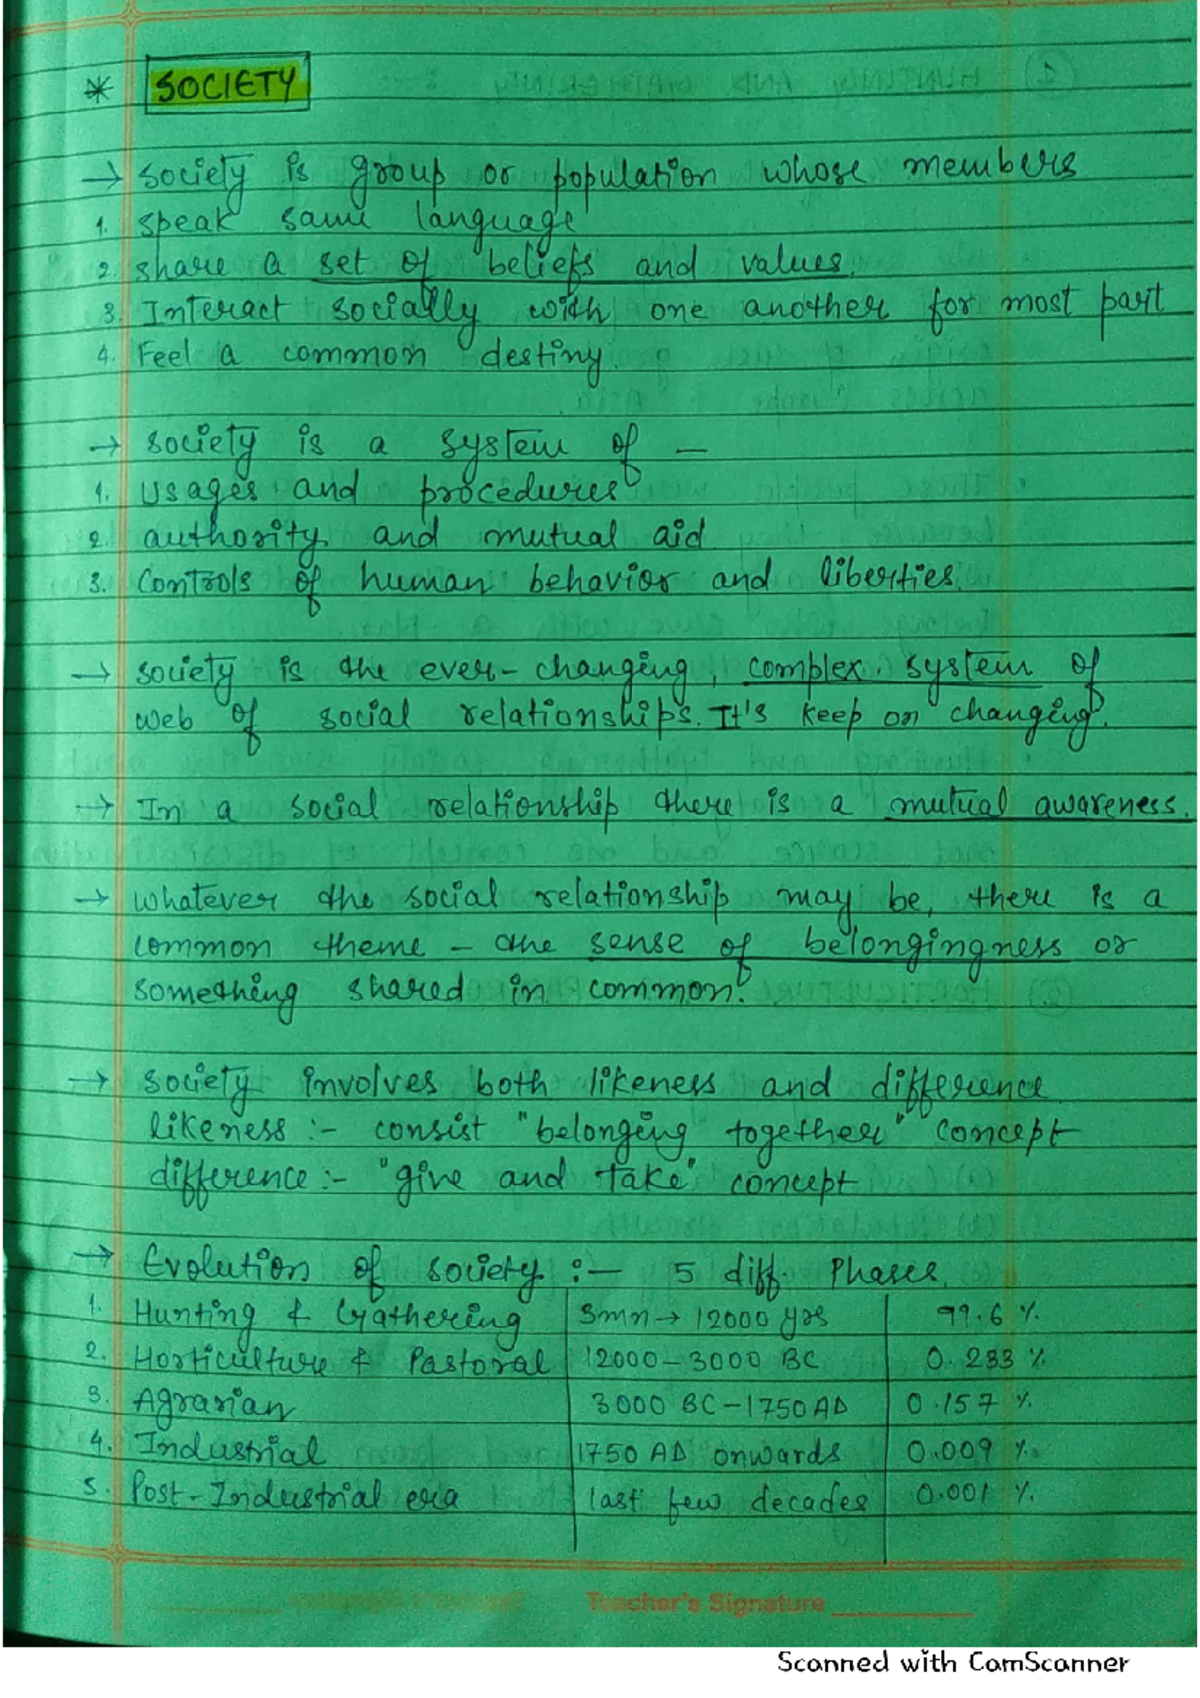 * SOCIETY
→ Society is group or population whose members
1. speak same language
2. share a set of beliefs and values.
3. Interact socially with one another for most part
4. Feel a common destiny.
→ society is a system of —
1. Usages and procedures
2. authority and mutual aid
3. Controls of human behavior and liberties.
→ society is the ever-changing, complex system of
web of social relationships. It's keep on changing.
→ In a social relationship there is a mutual awareness.
→ whatever the social relationship may be, there is a
common theme – the sense of belongingness or
something shared in common.
→ society involves both likeness and difference
likeness :- consist "belonging together" concept
difference :- "give and take" concept
→ Evolution of society :— 5 diff. Phases.
1. Hunting & Gathering 3mn → 12000 yrs 99.6 %
2. Horticulture & Pastoral 12000 – 3000 BC 0.233 %
3. Agrarian 3000 BC – 1750 AD 0.157 %
4. Industrial 1750 AD onwards 0.009 %
5. Post-Industrial era last few decades 0.001 %
Teacher's Signature
Scanned with CamScanner